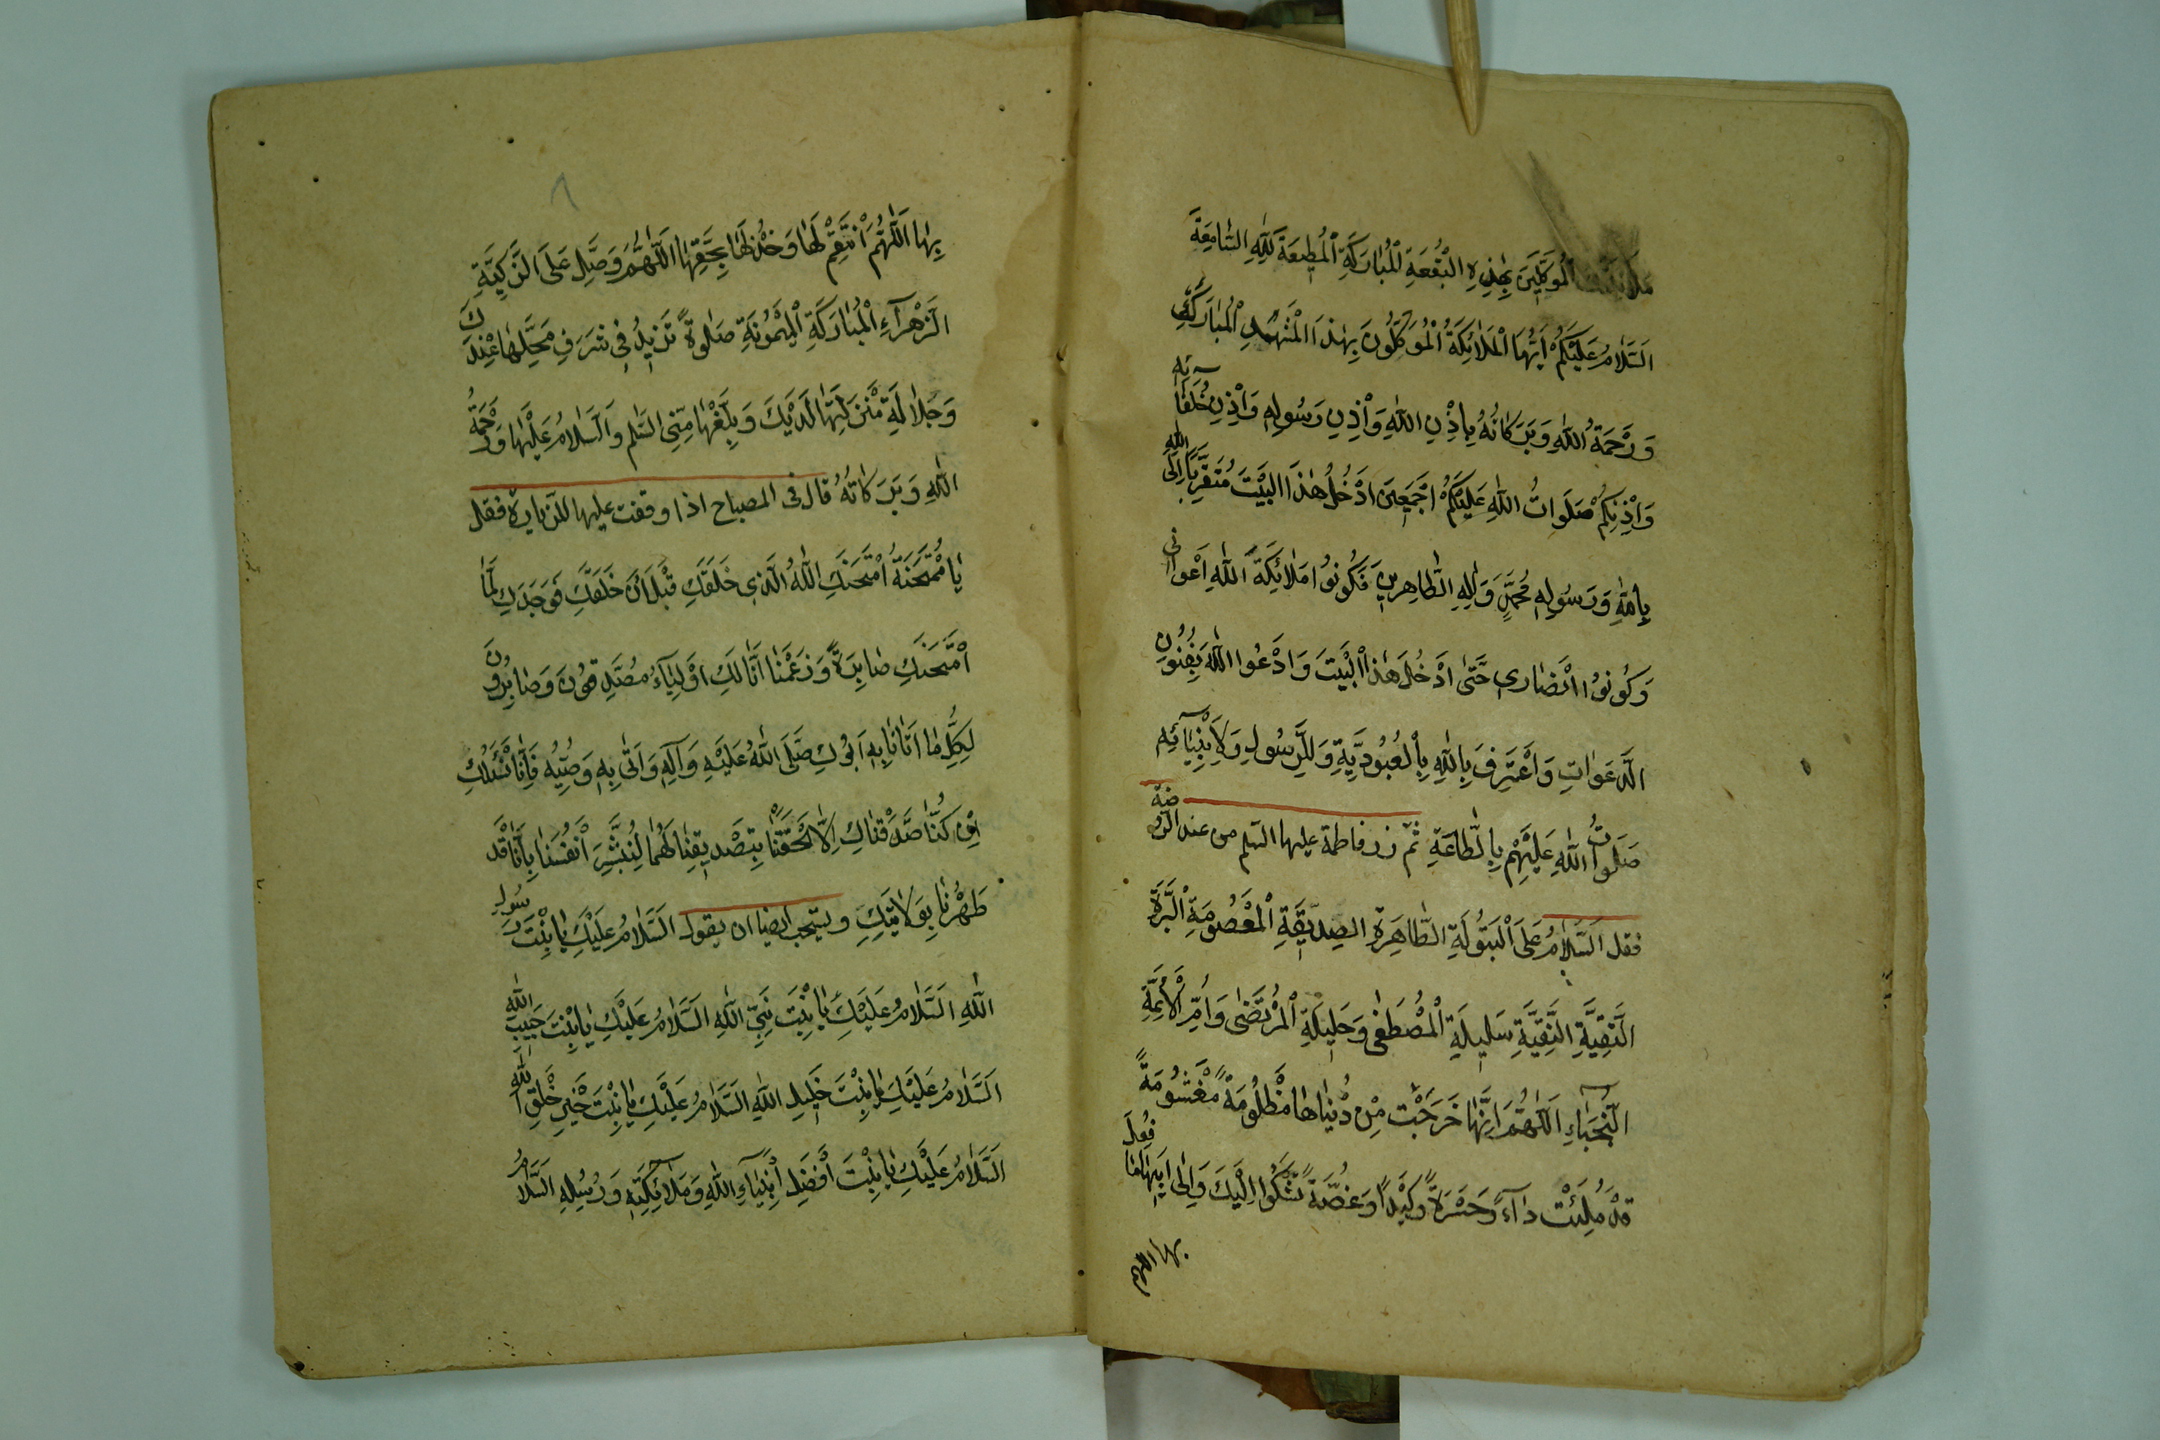 الْمُوَكَّلِينَ بِهٰذِهِ الْبُقْعَةِ الْمُبَارَكَةِ الْمُطِيعَةَ لِلّٰهِ السَّامِعَةَ
اَلسَّلَامُ عَلَيْكُمْ اَيَّتُهَا الْمَلَائِكَةُ الْمُوَكَّلُونَ بِهٰذَا الْمَشْهَدِ الْمُبَارَكِ
وَرَحْمَةُ اللّٰهِ وَبَرَكَاتُهُ بِاِذْنِ اللّٰهِ وَاِذْنِ رَسُولِهِ وَاِذْنِ خُلَفَائِهِ
وَاِذْنِكُمْ صَلَوَاتُ اللّٰهِ عَلَيْكُمْ اَجْمَعِينَ اَدْخُلُ هٰذَا الْبَيْتَ مُتَقَرِّبًا اِلَى اللّٰهِ
بِاللّٰهِ وَرَسُولِهِ مُحَمَّدٍ وَآلِهِ الطَّاهِرِينَ فَكُونُوا مَلَائِكَةَ اللّٰهِ اَعْوَانِي
وَكُونُوا اَنْصَارِي حَتّٰى اَدْخُلَ هٰذَا الْبَيْتَ وَاَدْعُوا اللّٰهَ بِفُنُونِ
الدَّعَوَاتِ وَاَعْتَرِفَ بِاللّٰهِ بِالْعُبُودِيَّةِ وَلِلرَّسُولِ وَلِاَبْنِيَآئِهِ
صَلَوَاتُ اللّٰهِ عَلَيْهِمْ بِالطَّاعَةِ ثم زر فاطمة عليها السلم من عند الروضة
فقل اَلسَّلَامُ عَلَى الْبَتُولَةِ الطَّاهِرَةِ الصِّدِّيقَةِ الْمَعْصُومَةِ الْبَرَّةِ
التَّقِيَّةِ النَّقِيَّةِ سَلِيلَةِ الْمُصْطَفٰى وَحَلِيلَةِ الْمُرْتَضٰى وَاُمِّ الْاَئِمَّةِ
النُّجَبَاءِ اَللّٰهُمَّ اِنَّهَا خَرَجَتْ مِنْ دُنْيَاهَا مَظْلُومَةً مَغْشُومَةً
قَدْ مُلِئَتْ دَاءً وَحَسْرَةً وَكَيْدًا وَغُصَّةً تَشْكُوا اِلَيْكَ وَاِلٰى اَبِيهَا مَا فُعِلَ
بها اللهم
٨
بِهَا اَللّٰهُمَّ انْتَقِمْ لَهَا وَخُذْ لَهَا بِحَقِّهَا اَللّٰهُمَّ وَصَلِّ عَلَى الزَّكِيَّةِ
الزَّهْرَآءِ الْمُبَارَكَةِ الْمَيْمُونَةِ صَلٰوةً تَزِيدُ فِي شَرَفِ مَحَلِّهَا عِنْدَكَ
وَجَلَالَةِ مَنْزِلَتِهَا لَدَيْكَ وَبَلِّغْهَا مِنِّي السَّلم وَالسَّلَامُ عَلَيْهَا وَرَحْمَةُ
اللّٰهِ وَبَرَكَاتُهُ قال في المصباح اذا وقفت عليها للزيارة فقل
يَا مُمْتَحَنَةُ امْتَحَنَكِ اللّٰهُ الَّذِي خَلَقَكِ قَبْلَ اَنْ خَلَقَكِ فَوَجَدَكِ لَمَّا
امْتَحَنَكِ صَابِرَةً وَزَعَمْنَا اَنَّا لَكِ اَوْلِيَآءُ مُصَدِّقُونَ وَصَابِرُونَ
لِكُلِّ مَا اَتَانَا بِهِ اَبُوكِ صَلَّى اللّٰهُ عَلَيْهِ وَآلِهِ وَاَتٰى بِهِ وَصِيُّهُ فَاِنَّا نَسْئَلُكِ
اِنْ كُنَّا صَدَّقْنَاكِ اِلَّا اَلْحَقْتِنَا بِتَصْدِيقِنَا لَهُمَا لِنُبَشِّرَ اَنْفُسَنَا بِاَنَّا قَدْ
طَهُرْنَا بِوَلَايَتِكِ ويستحب ايضا ان يقول اَلسَّلَامُ عَلَيْكِ يَا بِنْتَ رَسُولِ
اللّٰهِ اَلسَّلَامُ عَلَيْكِ يَا بِنْتَ نَبِيِّ اللّٰهِ اَلسَّلَامُ عَلَيْكِ يَا بِنْتَ حَبِيبِ اللّٰهِ
اَلسَّلَامُ عَلَيْكِ يَا بِنْتَ خَلِيلِ اللّٰهِ اَلسَّلَامُ عَلَيْكِ يَا بِنْتَ خَيْرِ خَلْقِ اللّٰهِ
اَلسَّلَامُ عَلَيْكِ يَا بِنْتَ اَفْضَلِ اَنْبِيَآءِ اللّٰهِ وَمَلَآئِكَتِهِ وَرُسُلِهِ اَلسَّلَامُ